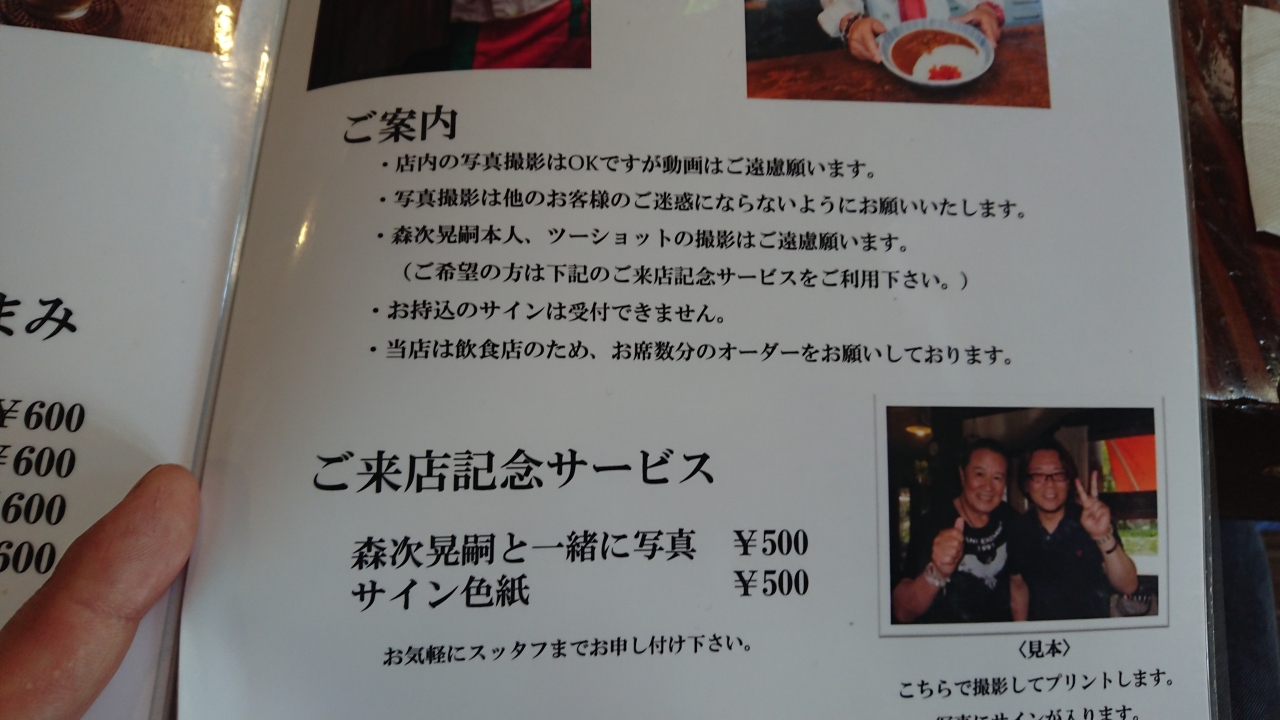 まみ
¥600
¥600
600
600
ご案内
・店内の写真撮影はOKですが動画はご遠慮願います。
・写真撮影は他のお客様のご迷惑にならないようにお願いいたします。
・森次晃嗣本人、ツーショットの撮影はご遠慮願います。
（ご希望の方は下記のご来店記念サービスをご利用下さい。）
・お持込のサインは受付できません。
・当店は飲食店のため、お席数分のオーダーをお願いしております。
ご来店記念サービス
森次晃嗣と一緒に写真 ¥500
サイン色紙 ¥500
お気軽にスッタフまでお申し付け下さい。
〈見本〉
こちらで撮影してプリントします。
写真にサインが入ります。